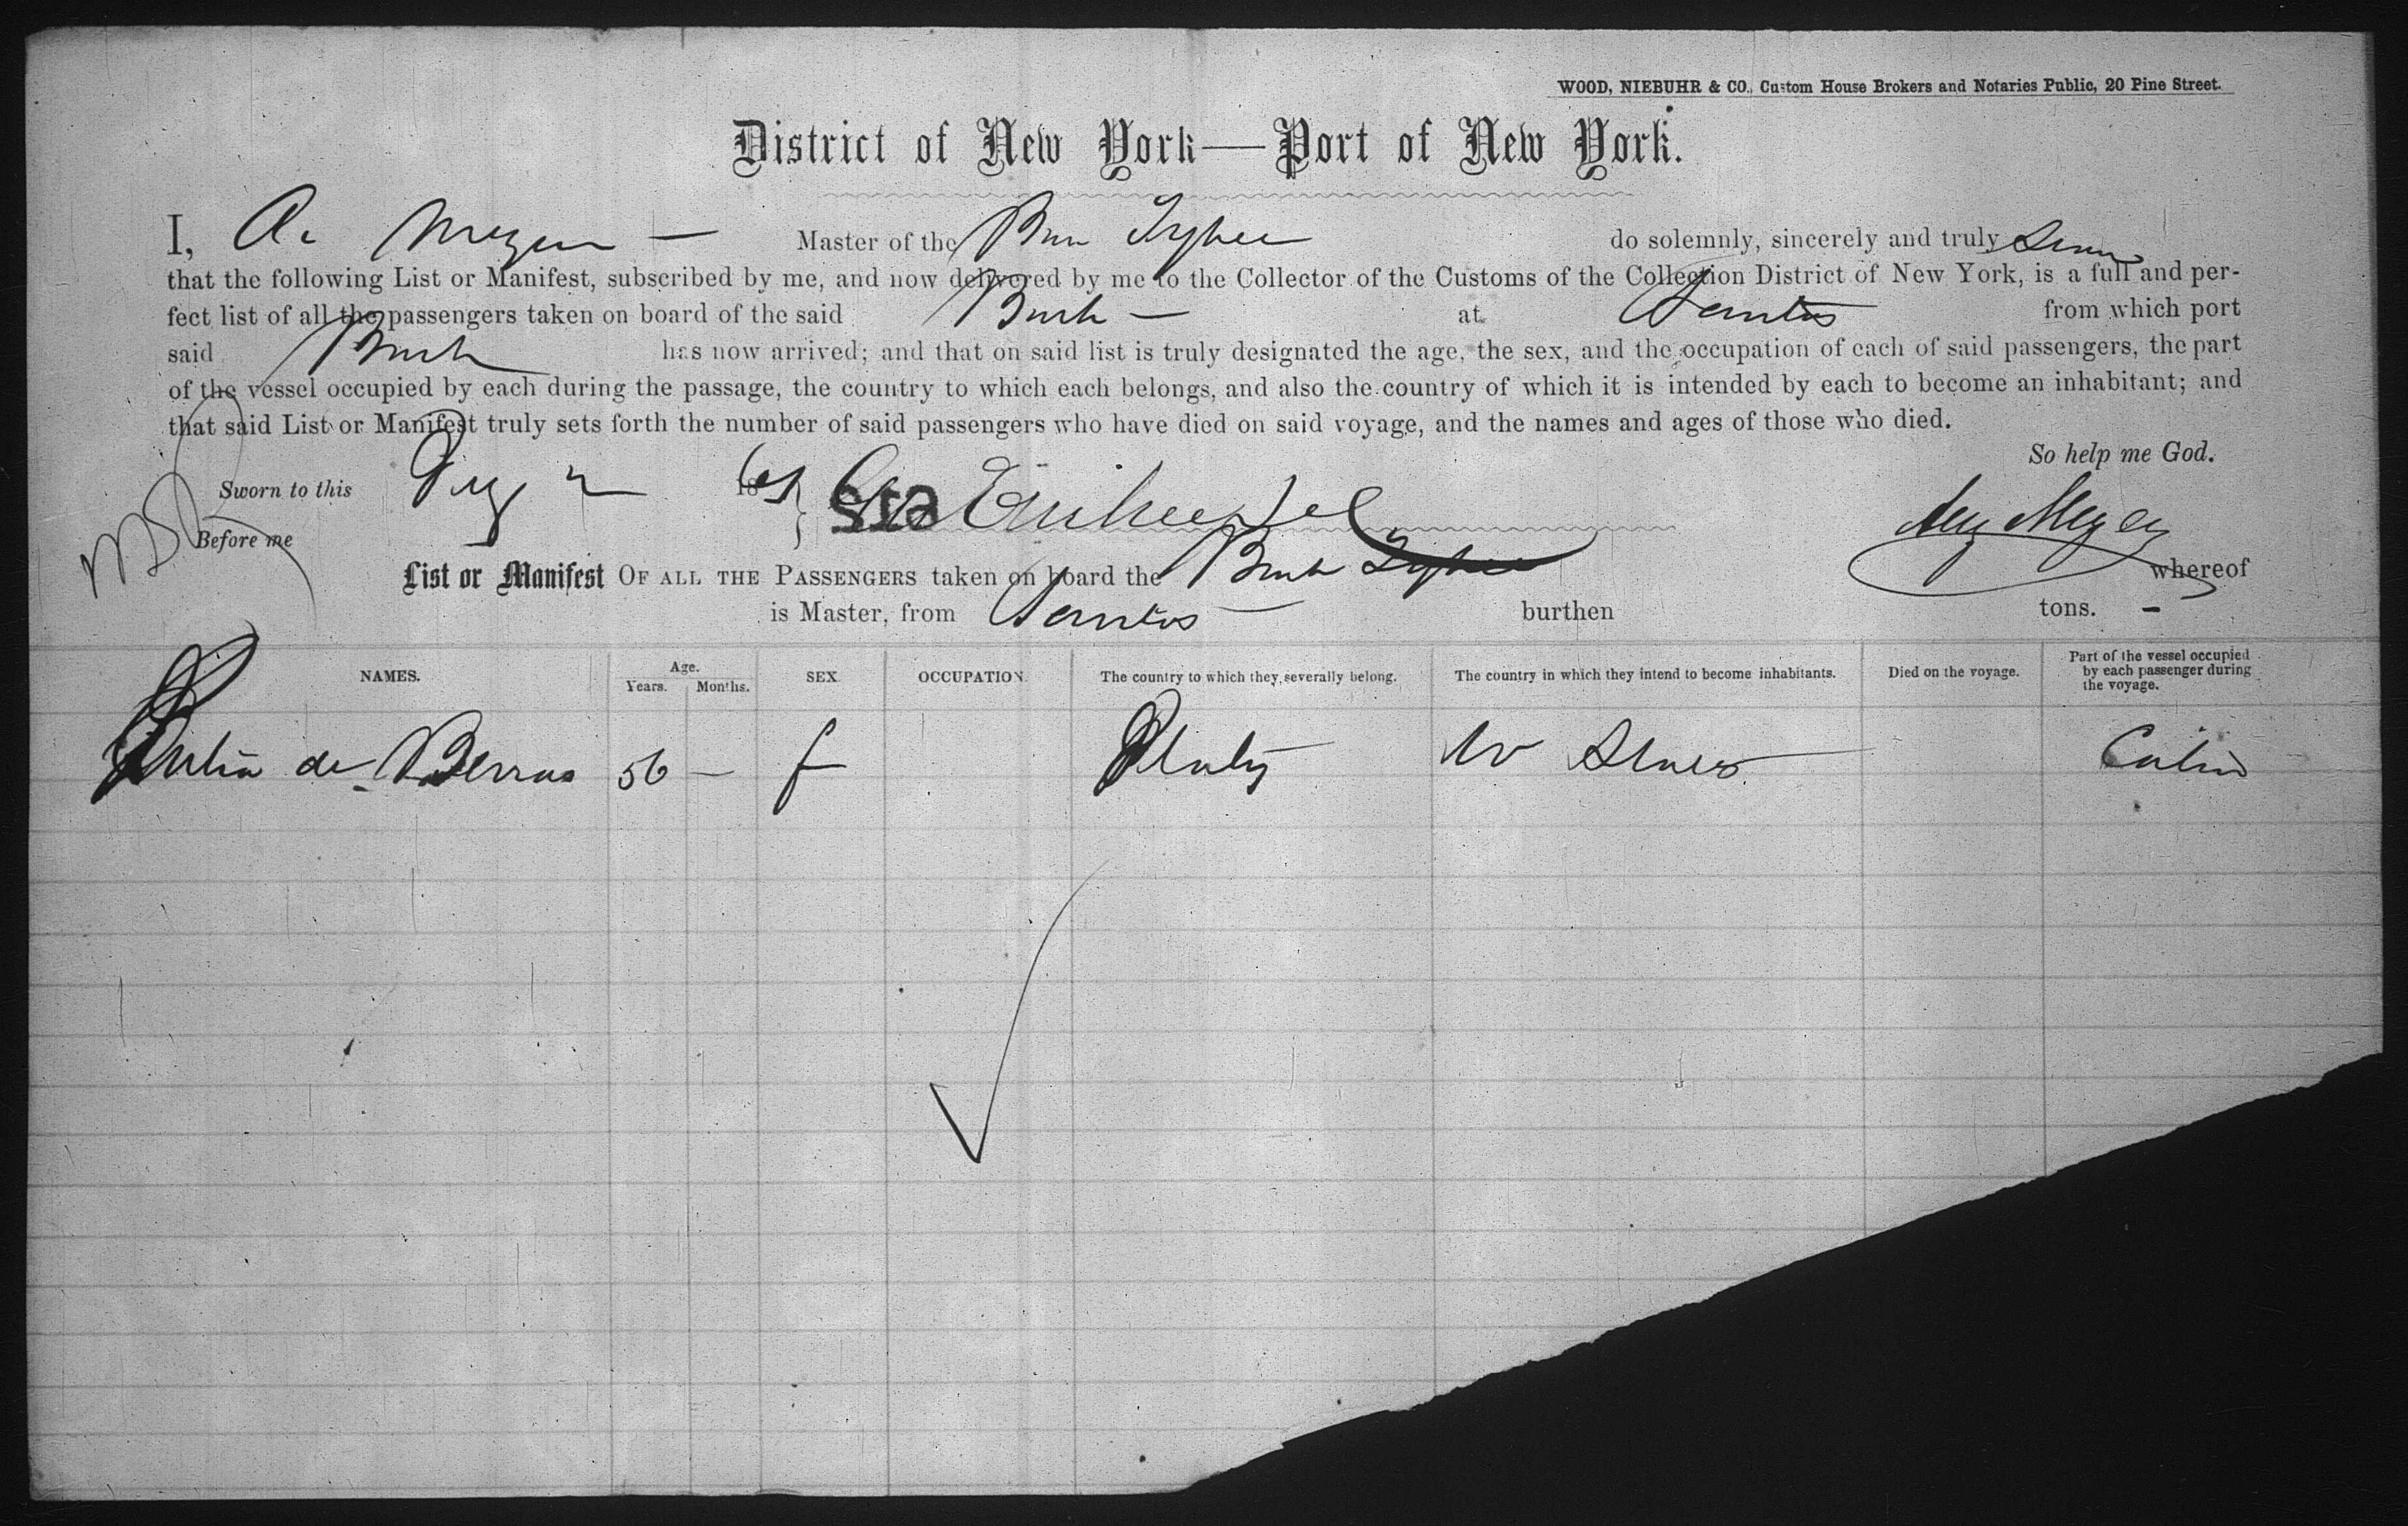 WOOD, NIEBUHR & CO., Custom House Brokers and Notaries Public, 20 Pine Street.
District of New York—Port of New York.
I, A. Meyer — Master of the do solemnly, sincerely and truly
that the following List or Manifest, subscribed by me, and now delivered by me to the Collector of the Customs of the Collection District of New York, is a full and per-
fect list of all the passengers taken on board of the said Bark — at Santos from which port
said Bark has now arrived; and that on said list is truly designated the age, the sex, and the occupation of each of said passengers, the part
of the vessel occupied by each during the passage, the country to which each belongs, and also the country of which it is intended by each to become an inhabitant; and
that said List or Manifest truly sets forth the number of said passengers who have died on said voyage, and the names and ages of those who died.
So help me God.
Sworn to this 2 18
Before me
552
Aug Meyer
List or Manifest OF ALL THE PASSENGERS taken on board the Bark whereof
is Master, from Santos — burthen tons. -
NAMES. Age. Years. Months. SEX. OCCUPATION. The country to which they severally belong. The country in which they intend to become inhabitants. Died on the voyage. Part of the vessel occupied by each passenger during the voyage.
de 56 — f U States Cabin